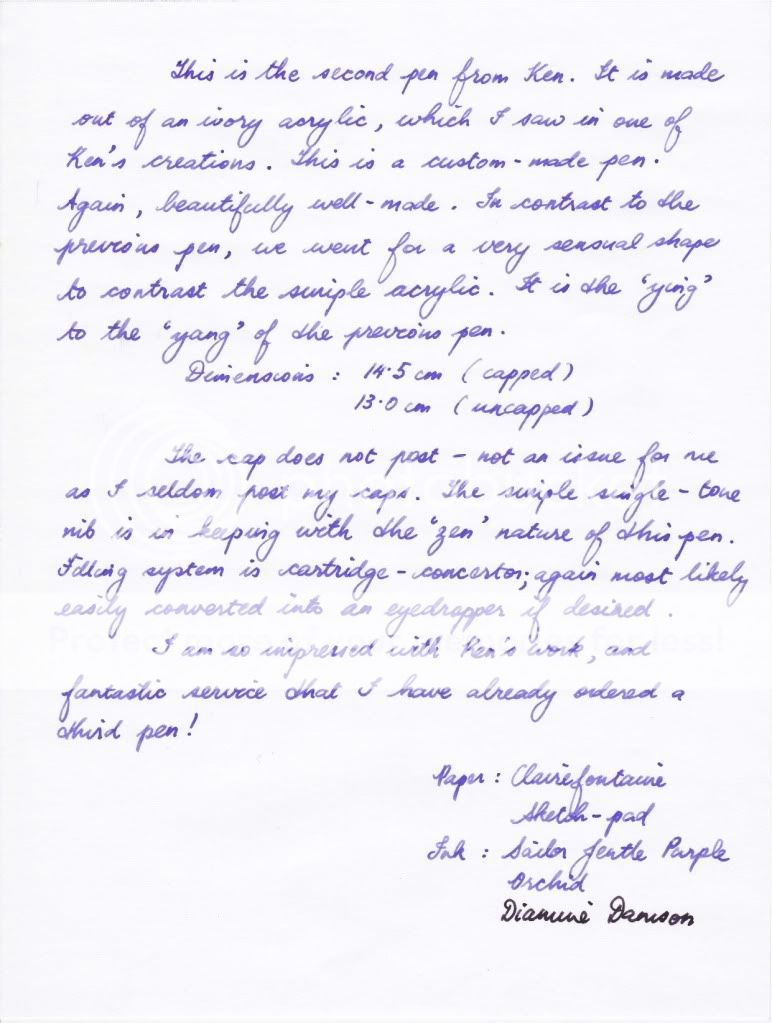 This is the second pen from Ken. It is made
out of an ivory acrylic, which I saw in one of
Ken's creations. This is a custom-made pen.
Again, beautifully well-made. In contrast to the
previous pen, we went for a very sensual shape
to contrast the simple acrylic. It is the "ying"
to the "yang" of the previous pen.
Dimensions : 14.5 cm (capped)
13.0 cm (uncapped)
The cap does not post - not an issue for me
as I seldom post my caps. The simple single-tone
nib is in keeping with the "zen" nature of this pen.
Filling system is cartridge-convertor; again most likely
easily converted into an eyedropper if desired.
I am so impressed with Ken's work, and
fantastic service that I have already ordered a
third pen!
Paper : Clairefontaine
Sketch-pad
Ink : Sailor Jentle Purple
Orchid
Diamine Damson